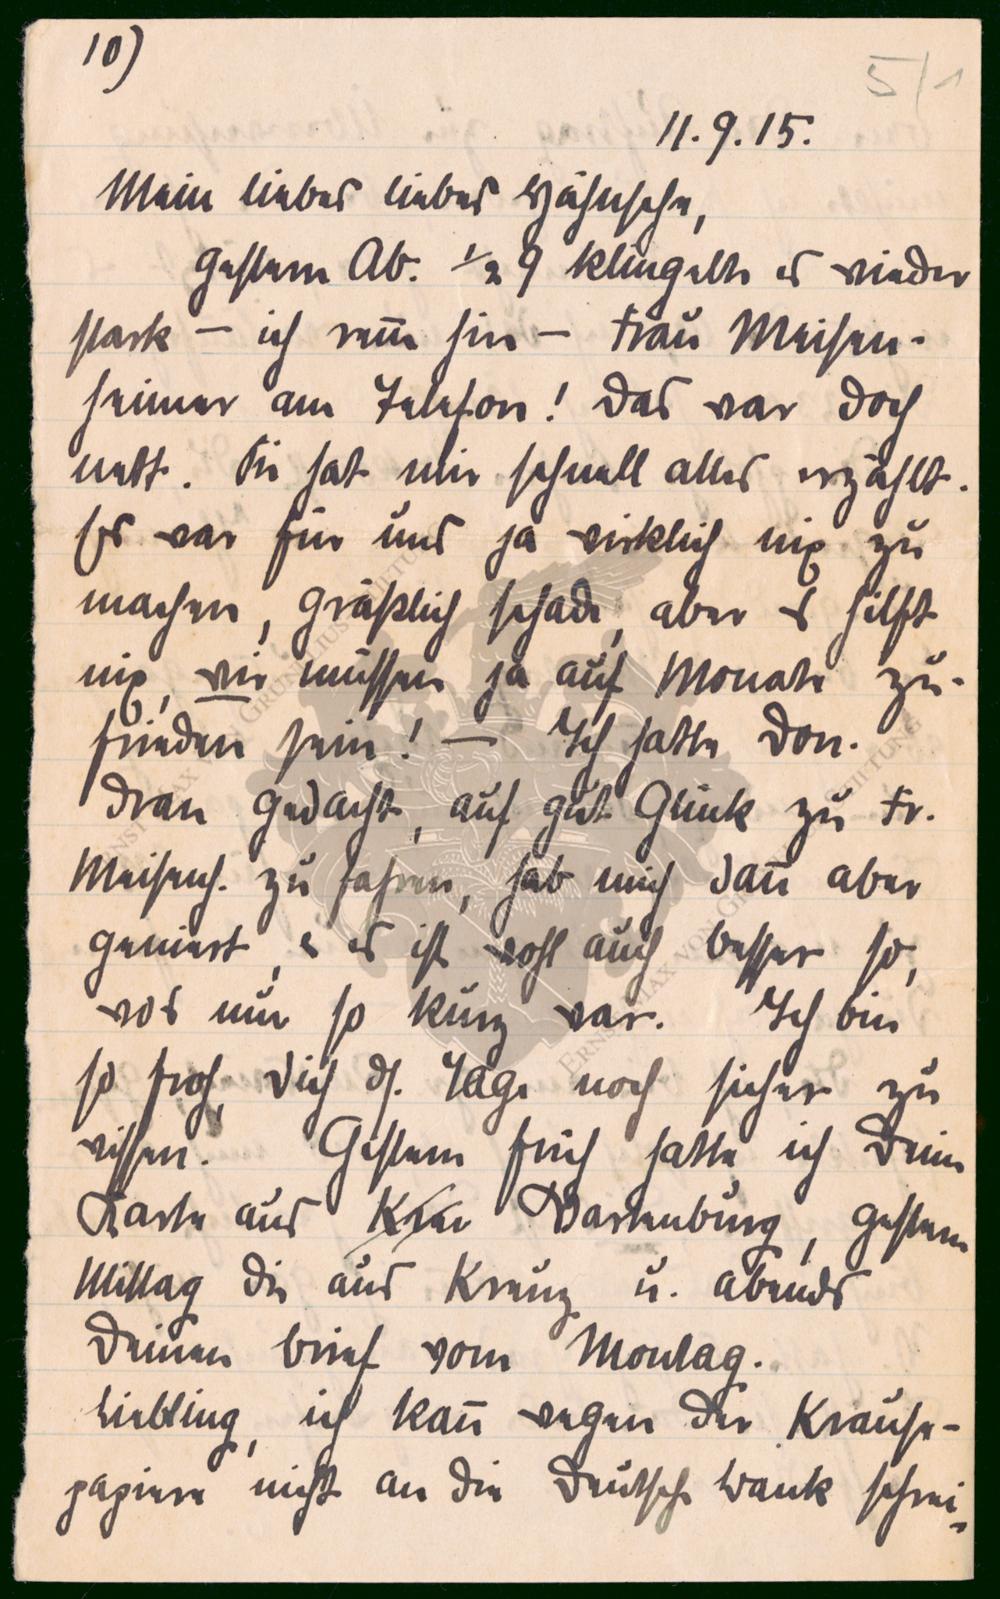 10)
5/1
11.9.15.
Mein liebes liebes Hähnsche,
gestern Ab. ½ 9 klingelte es wieder
stark – ich renn̄ hin – Frau Meisen-
heimer am Telefon! Das war doch
nett. Sie hat mir schnell alles erzählt.
Es war für uns ja wirklich nix zu
machen, gräßlich schade, aber es hilft
nix, wir müssen ja auf Monate zu-
frieden sein! — Ich hatte Don.
dran gedacht, auf gut Glück zu Fr.
Meisenh. zu fahren, hab mich dan̄ aber
geniert, & es ist wohl auch besser so,
wos nur so kurz war. Ich bin
so froh, Dich ds. Tage noch sicher zu
wissen. Gestern früh hatte ich Deine
Karte aus Kreu Wartenburg, gestern
Mittag die aus Kreuz u. abends
Deinen brief vom Montag.
Liebling, ich kan̄ wegen der Krause-
papiere nicht an die Deutsche Bank schrei-
ERNST MAX VON GRUNELIUS STIFTUNG
ERNST MAX VON GRUNELIUS STIFTUNG